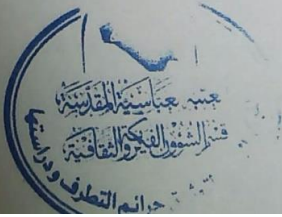 العباسية المقدسة
قسم الشؤون الفكرية والثقافية
جرائم التطرف ودراستها